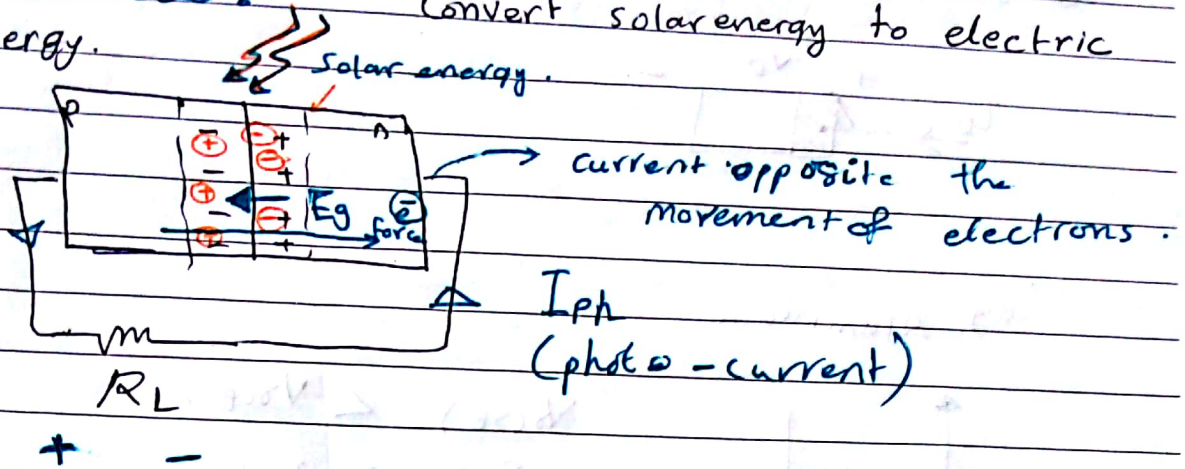 Convert solar energy to electric
ergy.
Solar energy.
P
n
current opposite the
movement of electrons.
Eg
e
force
Iph
(photo-current)
RL
+ -